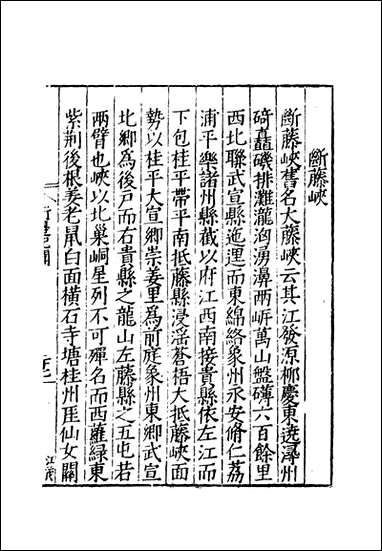 斷藤峽
斷藤峽舊名大藤峽云其江發源柳慶東遶潯州
碕矗磯排灘瀧洶湧濞兩岸萬山盤礴六百餘里
西北聯武宣縣迤𨓦而東綿絡象州永安脩仁荔
浦平樂諸州縣截以府江西南接貴縣依左江而
下包桂平帶平南抵藤縣浸淫蒼梧大抵藤峽面
勢以桂平大宣鄉崇姜里爲前庭象州東鄉武宣
北鄉爲後戶而右貴縣之龍山左藤縣之五屯若
兩臂也峽以北巢峒星列不可殫名而西蘿綠東
紫荆後根姜老鼠白面橫石寺塘桂州厓仙女關